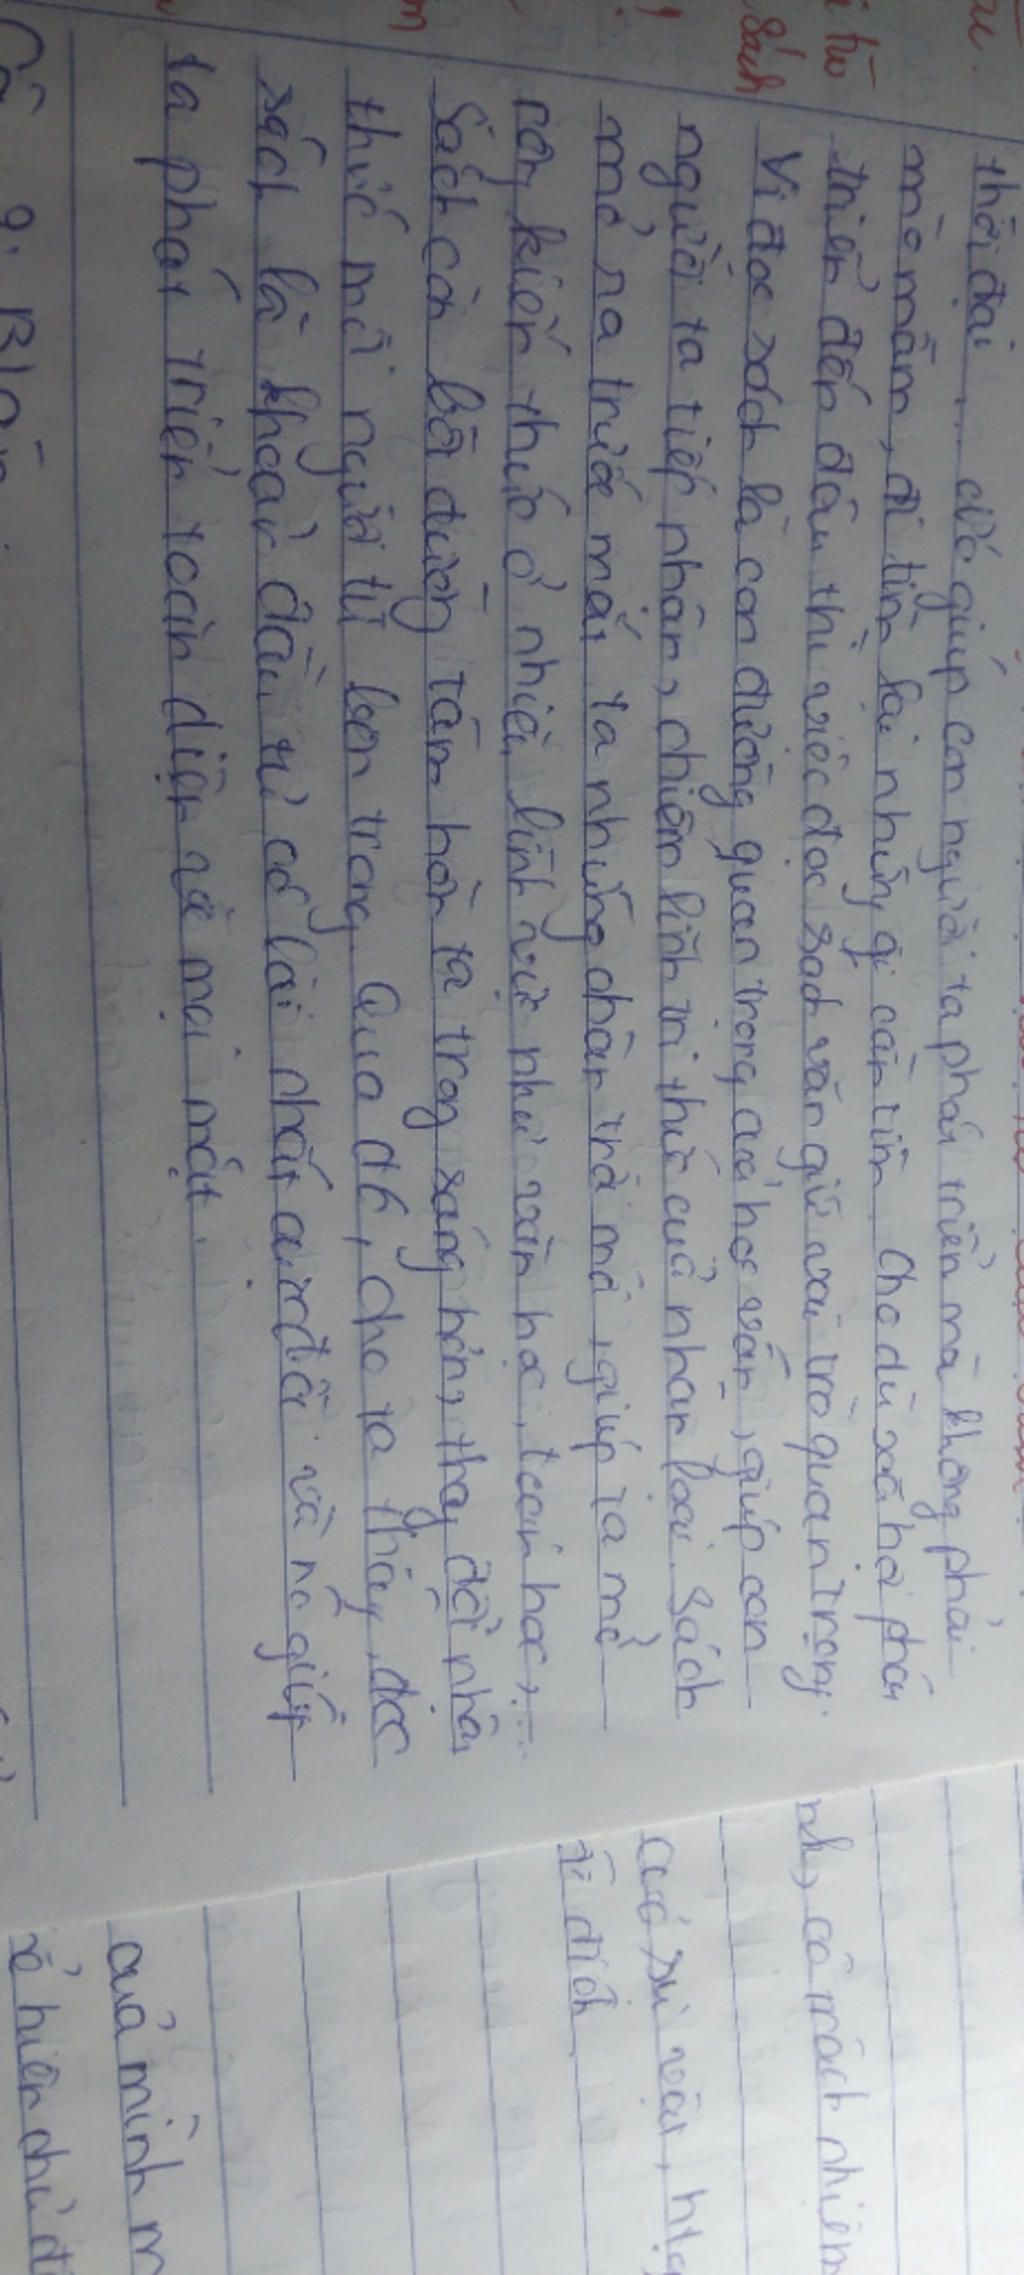 thời đại.... để giúp con người ta phát triển mà không phải
mò mẫm, đi tìm lại những gì cần tìm. Cho dù xã hội phát
triển đến đâu thì việc đọc sách vẫn giữ vai trò quan trọng.
Vì đọc sách là con đường quan trọng của học vấn, giúp con
người ta tiếp nhận, chiếm lĩnh tri thức của nhân loại. Sách
mở ra trước mắt ta những chân trời mới, giúp ta mở
rộng kiến thức ở nhiều lĩnh vực như văn học, toán học,...
Sách còn bồi dưỡng tâm hồn ta trong sáng hơn, thay đổi nhận
thức mỗi người từ bên trong. Qua đó, cho ta thấy, đọc
sách là khoản đầu tư có lời nhất cuộc đời và nó giúp
ta phát triển toàn diện về mọi mặt.
sách
nh, có trách nhiệm
của sự vật, hiện
vì đích
của mình